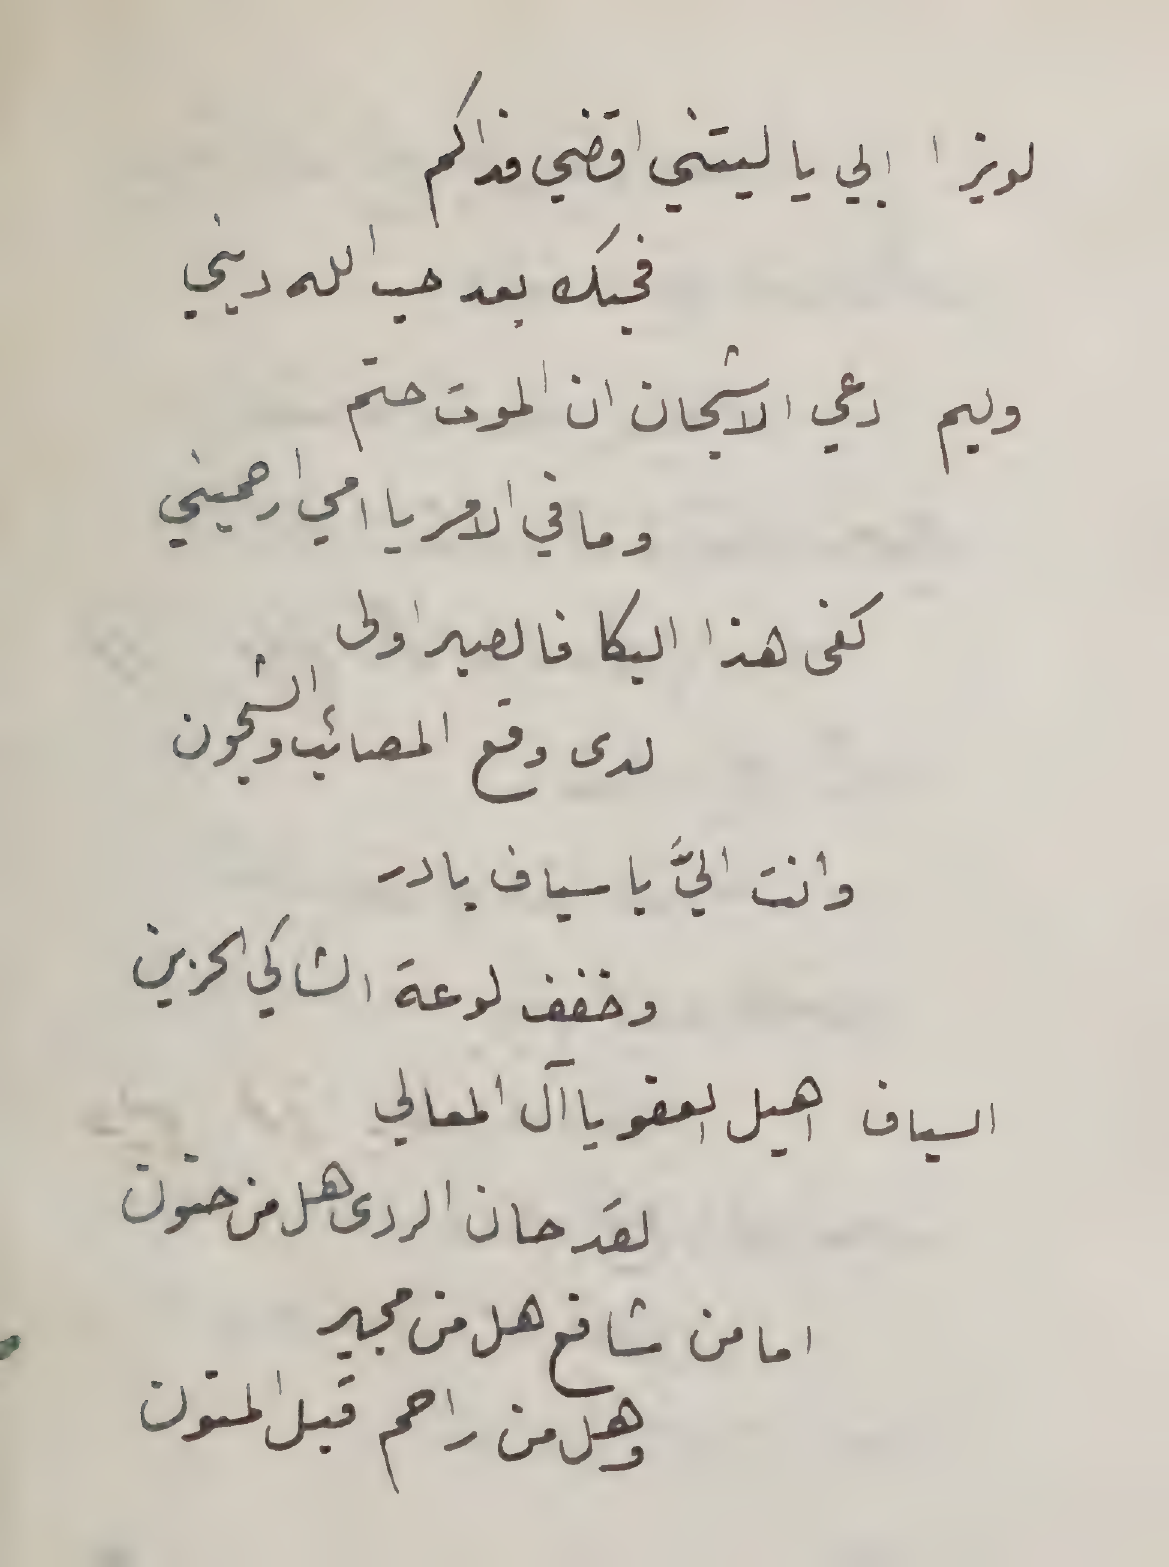 لويزا ابي يا ليتني اقضي فداكم
فحبك بعد حب الله ديني
وليم دعي الاشجان ان الموت حتم
وما في الامر يا امي ارحميني
كفى هذا البكا فالصبر اولى
لدى وقع المصائب والشجون
وانت اليَّ يا سياف بادر
وخفف لوعة الشاكي الحزين
السياف اهيل العفو يا آل المعالي
لقد حان الردى هل من حنون
اما من شافع هل من مجير
وهل من راحم قبل المنون